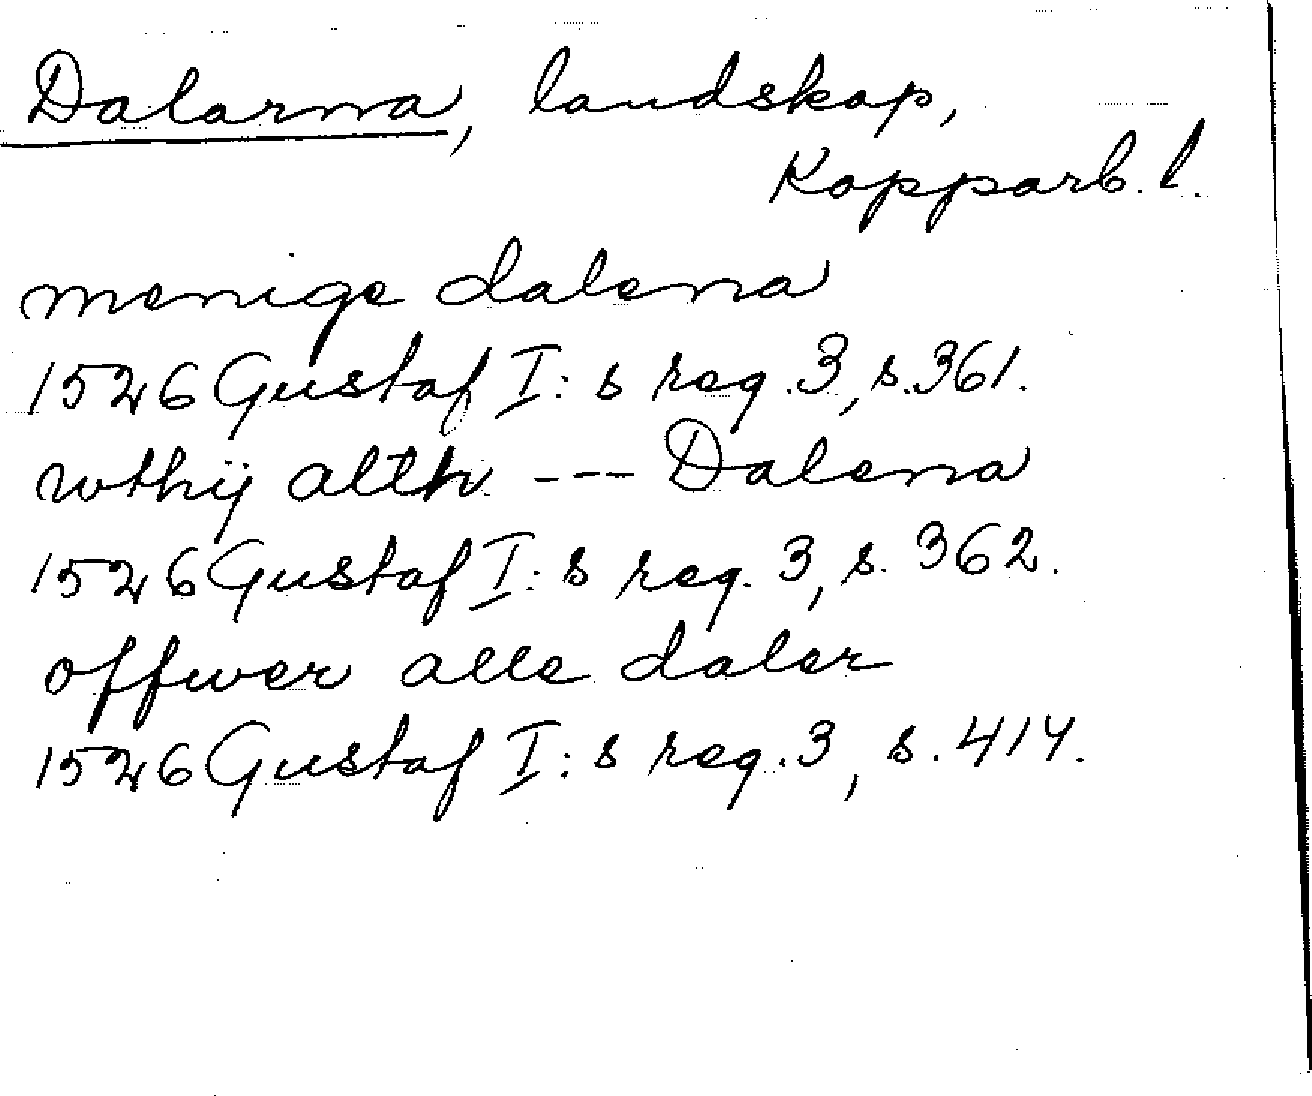 Dalarna, landskap,
Kopparb. l.
menige dalena
1526 Gustaf I: s reg. 3, s. 361.
wthij alth --- Dalena
1526 Gustaf I: s reg. 3, s. 362.
offwer alle daler
1526 Gustaf I: s reg. 3, s. 414.